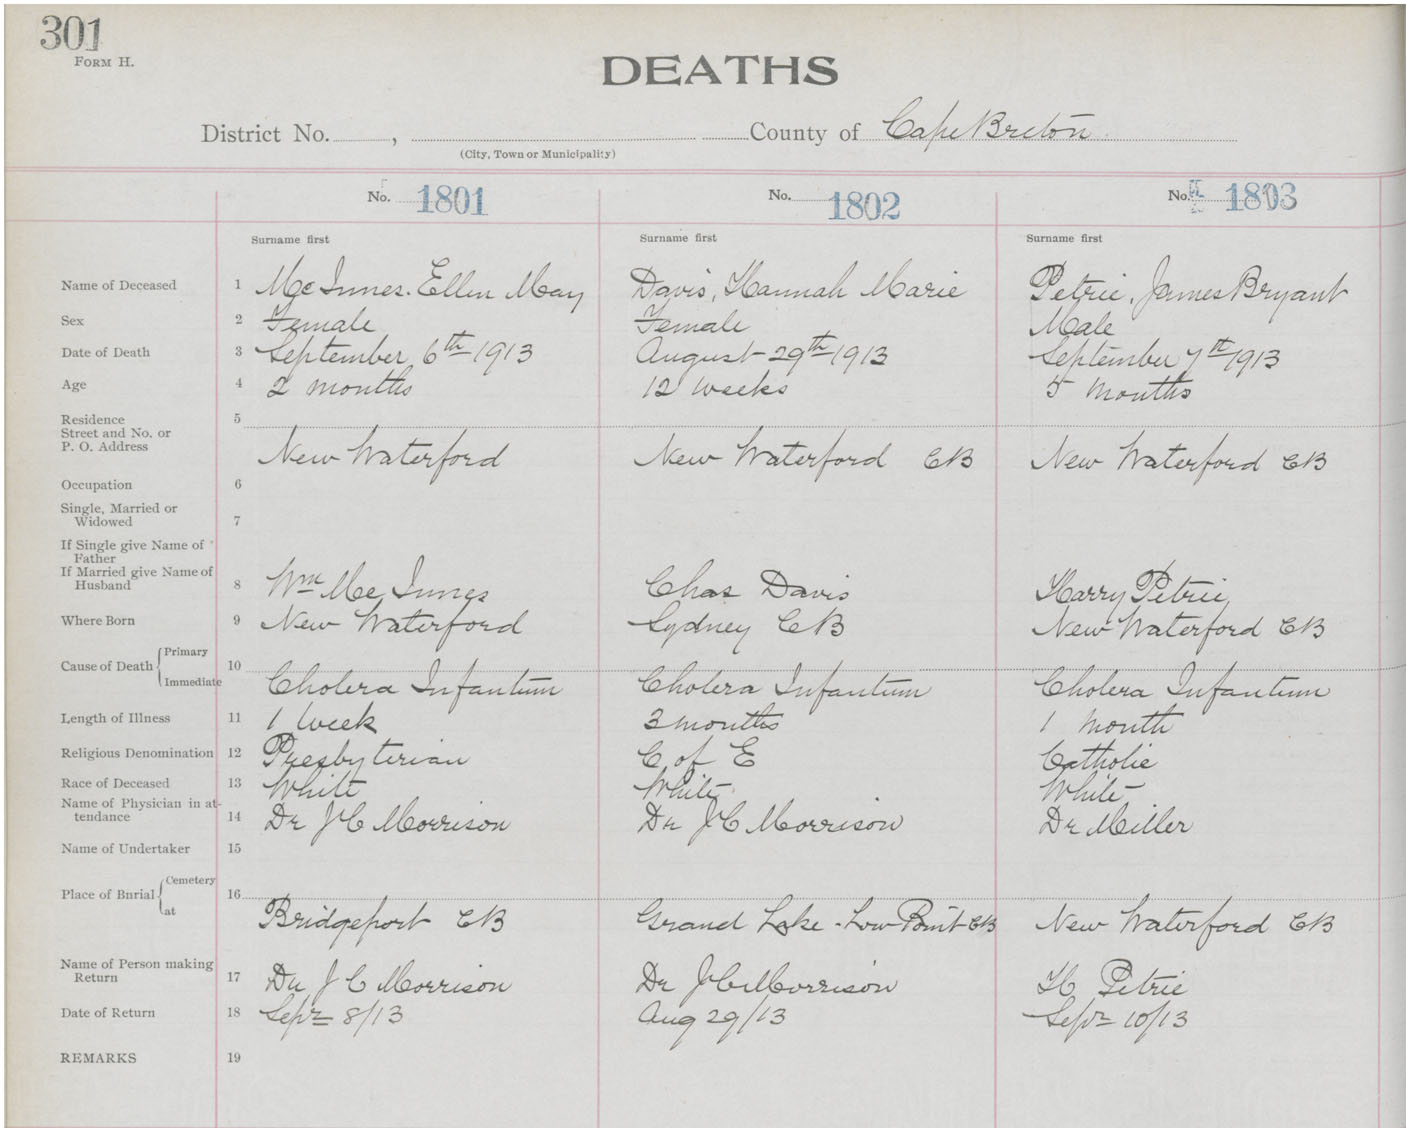 301
FORM H.
DEATHS
District No. , County of Cape Breton
(City, Town or Municipality)
No. 1801 No. 1802 No. 1803
Surname first Surname first Surname first
Name of Deceased 1 McInnes. Ellen May Davis, Hannah Marie Petrie, James Bryant
Sex 2 Female Female Male
Date of Death 3 September 6th 1913 August 29th 1913 September 7th 1913
Age 4 2 months 12 weeks 5 months
Residence 5
Street and No. or
P. O. Address New Waterford New Waterford CB New Waterford CB
Occupation 6
Single, Married or
Widowed 7
If Single give Name of
Father
If Married give Name of
Husband 8 Wm Mc Innes Chas Davis Harry Petrie
Where Born 9 New Waterford Sydney CB New Waterford CB
Cause of Death { Primary 10
Immediate Cholera Infantum Cholera Infantum Cholera Infantum
Length of Illness 11 1 week 3 months 1 month
Religious Denomination 12 Presbyterian C of E Catholic
Race of Deceased 13 White White White
Name of Physician in at-
tendance 14 Dr J C Morrison Dr J C Morrison Dr Miller
Name of Undertaker 15
Place of Bnrial { Cemetery 16
at Bridgeport CB Grand Lake - Low Point CB New Waterford CB
Name of Person making
Return 17 Dr J C Morrison Dr J C Morrison H Petrie
Date of Return 18 Sepr 8/13 Aug 29/13 Sepr 10/13
REMARKS 19